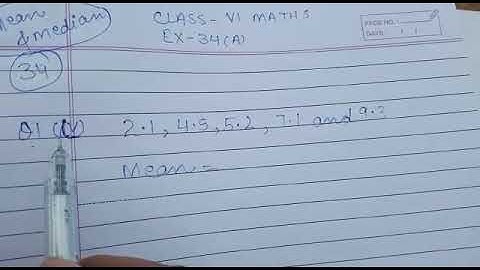 Mean
& Median
CLASS- VI MATHS
EX-34(A)
PAGE NO.:
DATE: / /
34
Q1 (V) 2.1, 4.5, 5.2, 7.1 and 9.3
Mean =